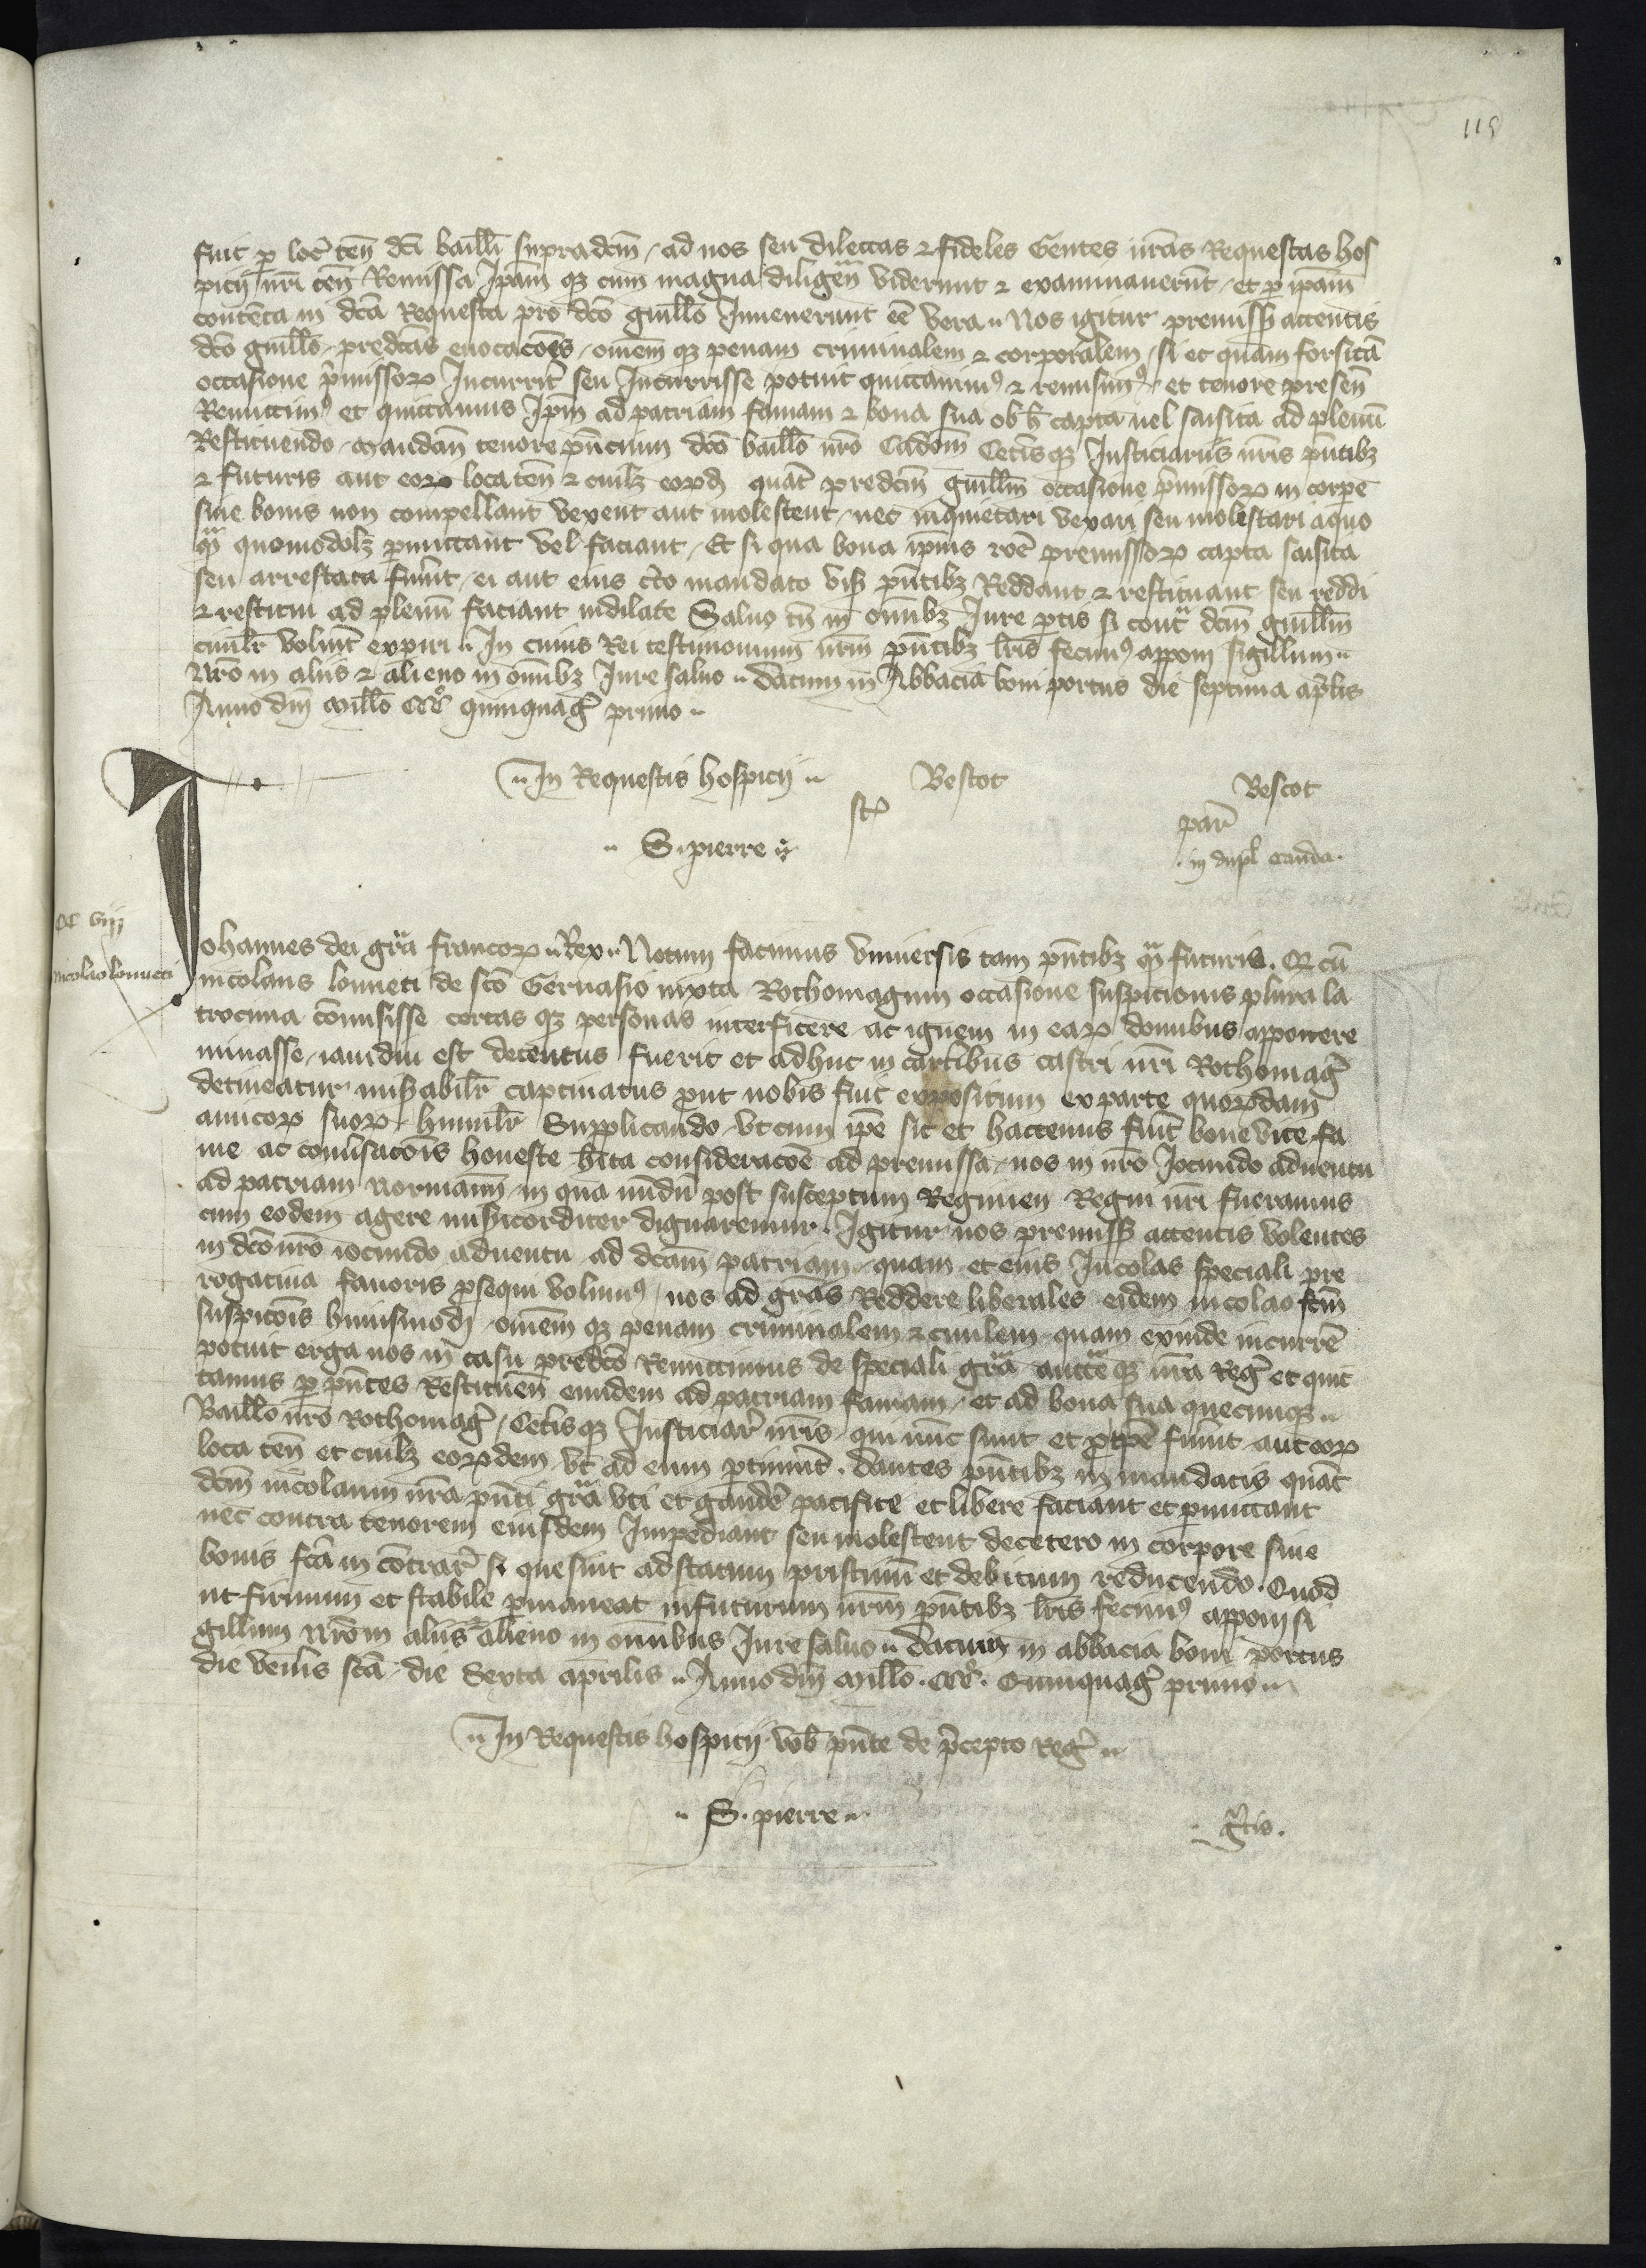 115
fuit p loc ten dci bailli supradcm / ad nos seu dilectas & fideles Gentes nras Requestas hos
picij nri ten Remissa Ipam qz cum magna diligen viderunt & examinauerunt / et p ipam
contenta in dca Requesta pro dco guillo Inuenerunt ee vera Nos igitur premiss attentis
dco guillo predcas euocacoes / omem qz penam criminalem & corporalem / si et quam forsita
occasione pmissorz Incurrit seu Incurrisse potuit quittauim9 & remisim9 et tenore presen
Remittim9 et quittamus Ipm ad patriam famam & bona sua ob h capta uel saisita ad plenu
Restituendo Mandan tenore pncium dco baillo nro Cadom Cetisqz Iusticiariis nris pntibz
& futuris aut eorz locaten & cuilz eorzd quat predcm guillm occasione pmissorz in corpe
siue bonis non compellant vexent aut molestent / nec inquietari vexari seu molestari aquo
qm quomodolz pmittant vel faciant / Et si qua bona ipius roe premissorz capta saisita
seu arrestata fuint / ei aut eius cto mandato vis pntibz Reddant & restituant seu reddi
& restitui ad plenu faciant indilate Saluo tn in omibz Iure ptis si cont dcm guillm
ciuilr voluit expiri In cuius Rei testimonium nrm pntibz lris fecim9 apponi sigillum
Nro in aliis & alieno in omibz Iure saluo datum in Abbacia boni portus die septima aplis
Anno dni Millo CCCo quinquag primo
In Requestis hospicij Bescot Bescot
S. pierre par
in dupl cauda
CC viij
Nicolao lonneti
Iohannes dei gra francorz Rex Notum facimus Vniuersis tam pntibz qm futuris. Q cu
nicolaus lonneti de sco Geruasio iuxta Rothomagum occasione suspicionis plura la
trocinia comisisse certas qz personas interficere ac ignem in earz domibus apponere
minasse / iamdiu est detentus fuerit et adhuc in carcibus castri nri Rothomag
detineatur misabilr captiuatus put nobis fuit expositum ex parte quorzdam
amicorz suorz humilr Supplicando / vt cum ipe sit et hactenus fuit bone vite fa
me ac conusacois honeste hita consideracoe ad premissa / nos in nro Iocundo aduentu
ad patriam Normann / in qua nudu post susceptum Regimen Regni nri fueramus
cum eodem agere misicorditer dignaremur. Igitur nos premiss attentis volentes
in dco nro iocundo aduentu ad dcam patriam quam et eius Incolas speciali pre
rogatiua fauoris psequi volum9 / nos ad gras Reddere liberales eidem nicolao fcm
suspicois huiusmod / omem qz penam criminalem & ciuilem quam exinde incurre
potuit erga nos in casu predco Remittimus de speciali gra auctte qz nra Reg et quit
tamus p pntes Restituen eundem ad patriam famam / et ad bona sua quecunqz
Baillo nro Rothomag / Cetisqz Iusticiar nris qui nuc sunt et p tpe fuint aut eorz
loca ten et cuilz eorzdem / vt ad eum ptinuit. dantes pntibz in mandatis quat
dcm nicolaum nra pnti gra vti et gaude pacifice et libere faciant et pmittant
nec contra tenorem eiusdem Impediant seu molestent decetero in corpore siue
bonis fca in contrar si que sint ad statum pristinu et debitum reducendo. Quod
ut firmum et stabile pmaneat infuturum nrm pntibz lris fecim9 apponi si
gillum Nro in aliis & alieno in omnibus Iure saluo datum in abbacia boni portus
die venis sca / die Sexta aprilis Anno dni Millo. CCCo. Quinquag primo
In Requestis hospicij vob pnte de pcepto Reg
S. pierre
gtis.